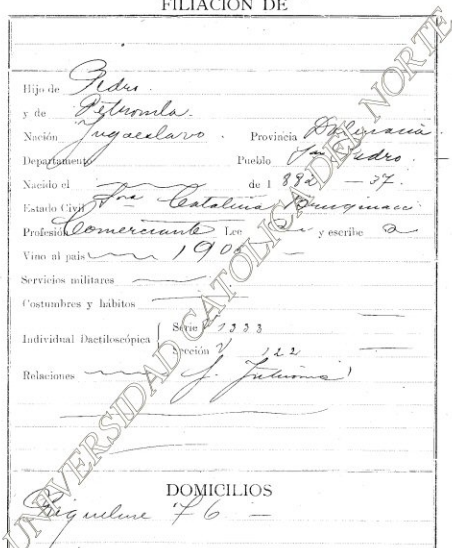 FILIACION DE
Hijo de Pedro.
y de Petronila.
Nación Yugoeslavo Provincia Dalmacia
Departamento Pueblo San Pedro.
Nacido el de 1 892 — 37.
Estado Civil Catalina
Profesión Comerciante Lee y escribe
Vino al país 190
Servicios militares
Costumbres y hábitos
Individual Dactiloscópica Serie 1333
Sección 122
Relaciones
DOMICILIOS
76 —
UNIVERSIDAD CATOLICA DEL NORTE